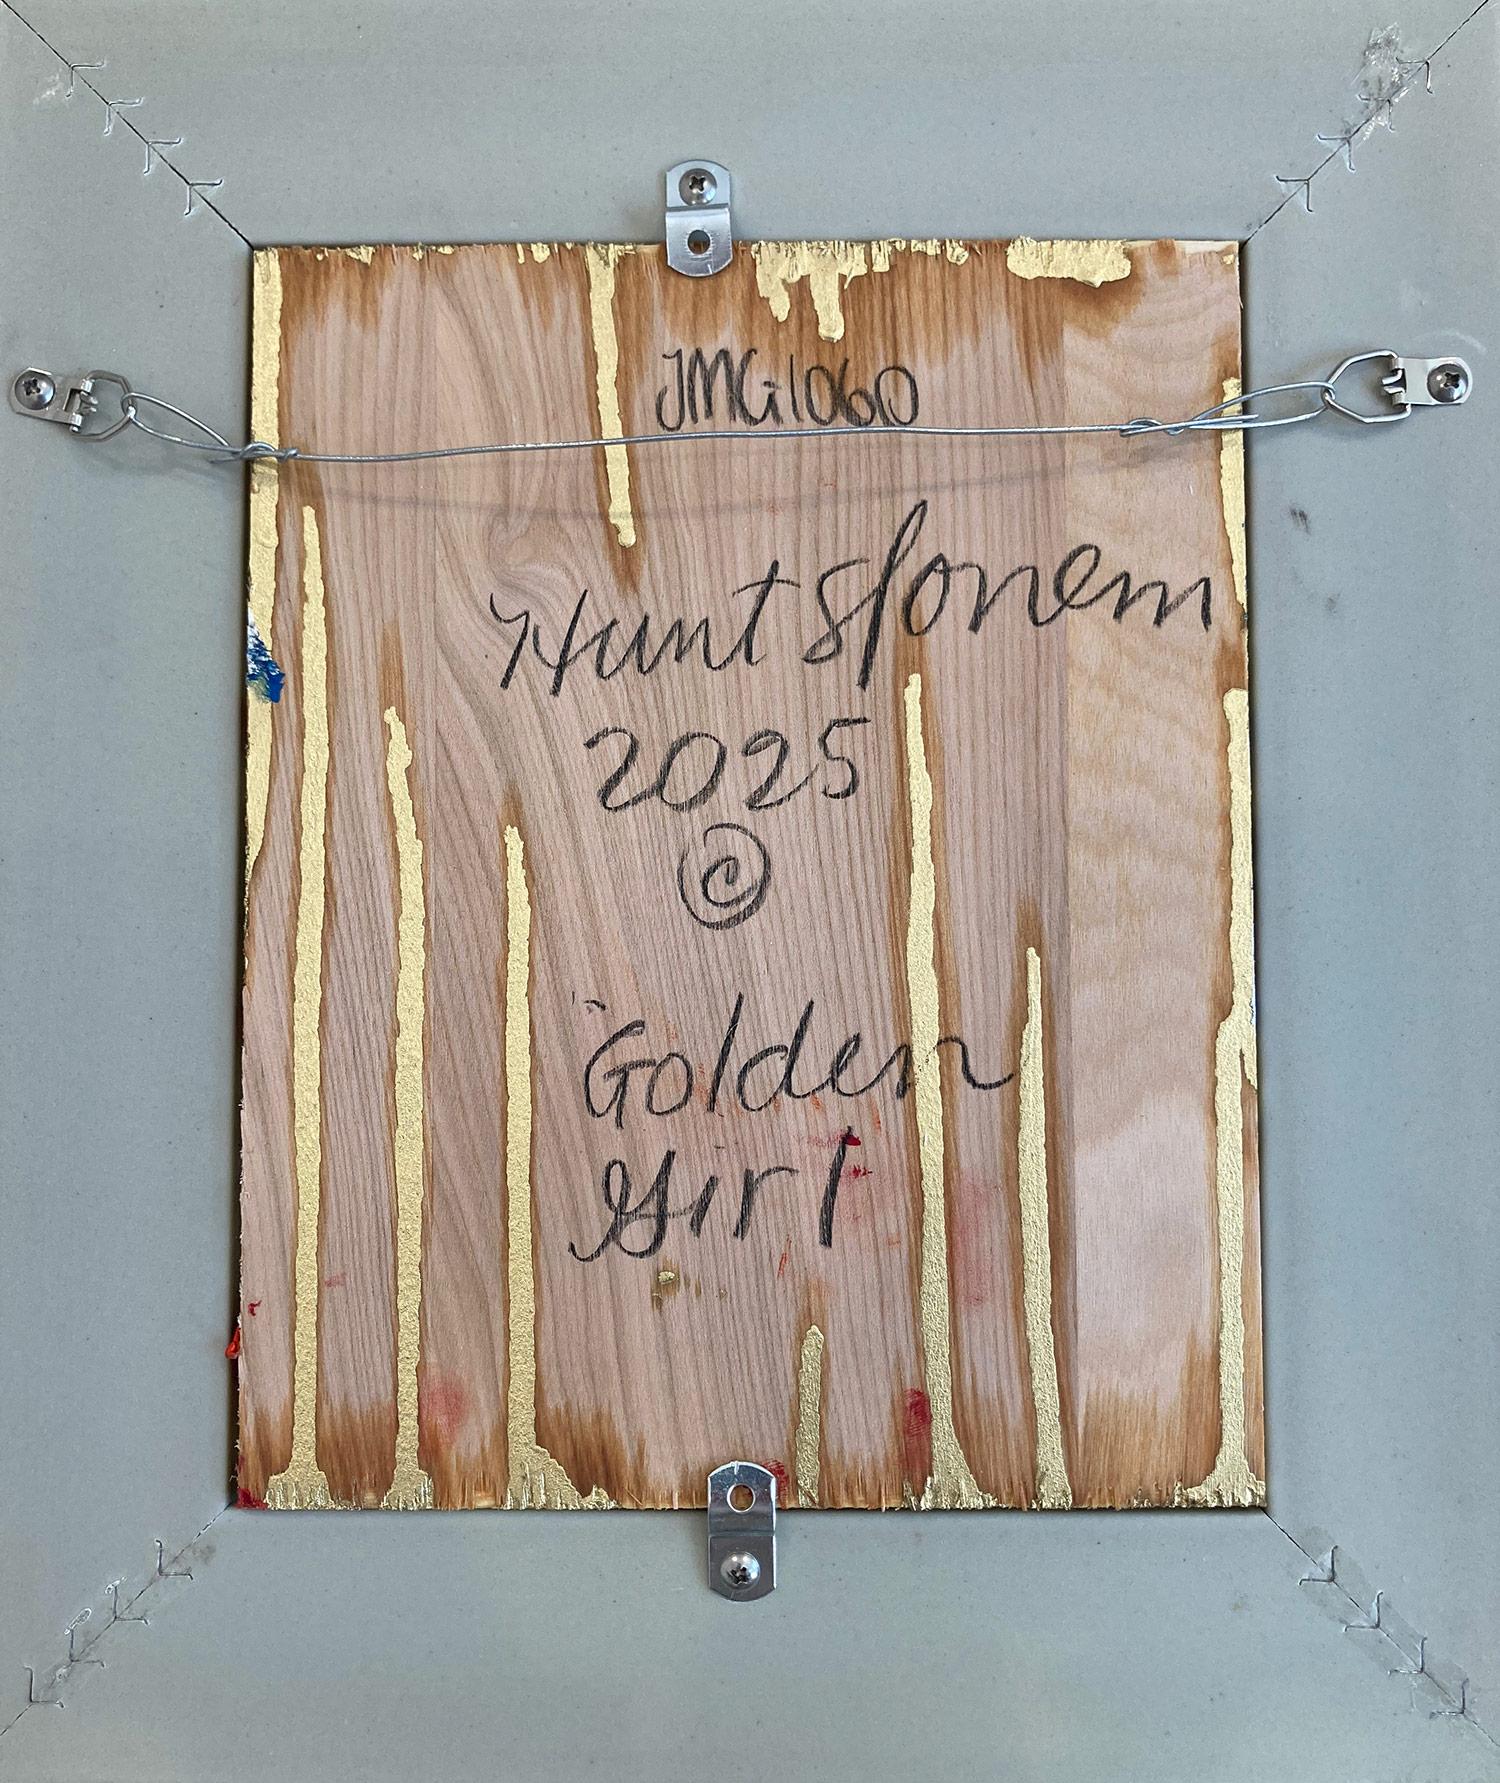 JMG1060
Hunt Slonem
2025
©
"Golden
Girl